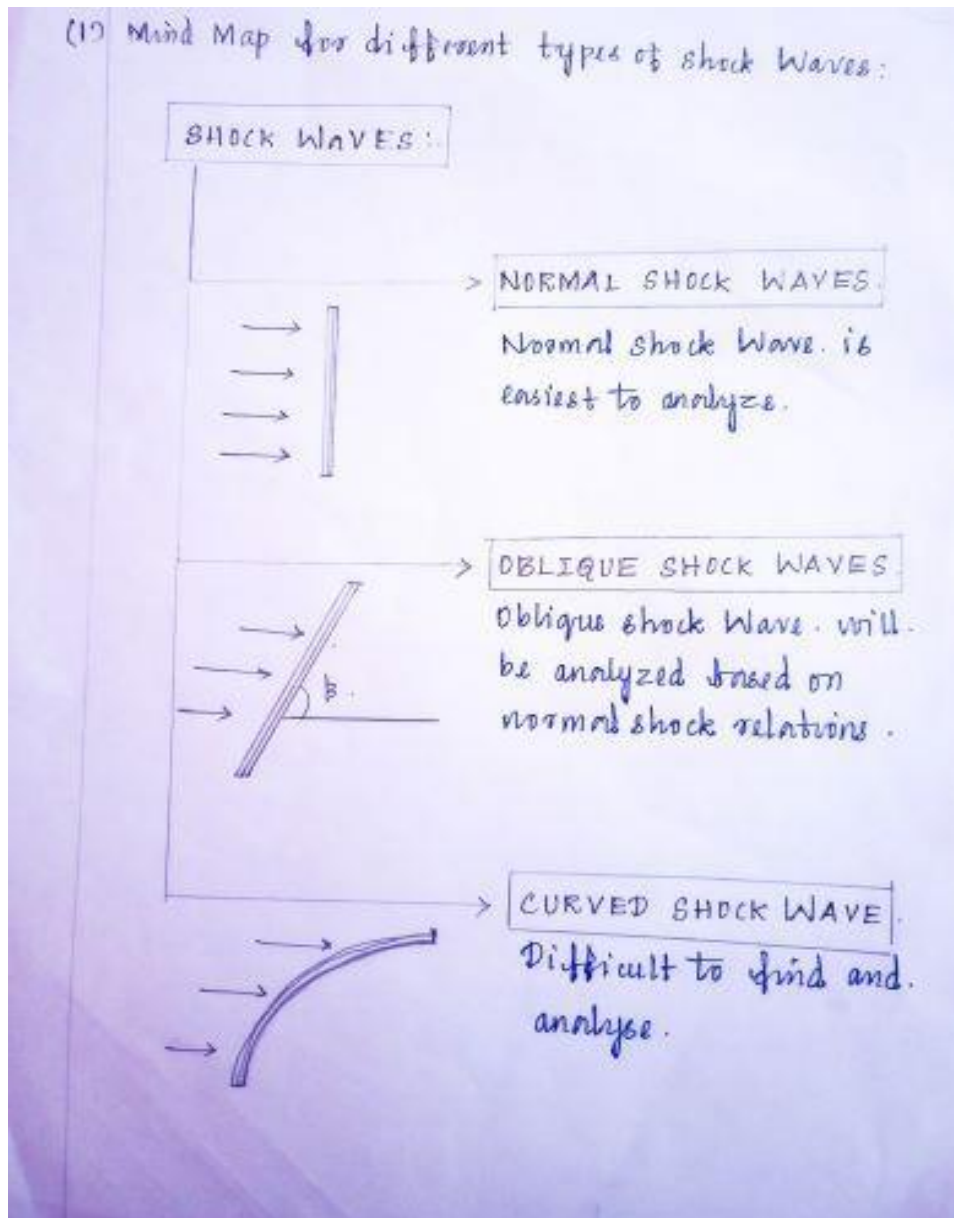 (1) Mind Map for different types of shock Waves:
SHOCK WAVES:
NORMAL SHOCK WAVES.
Normal shock Wave. is
easiest to analyze.
OBLIQUE SHOCK WAVES.
Oblique shock Wave. will.
be analyzed based on
normal shock relations.
β.
CURVED SHOCK WAVE.
Difficult to find and.
analyse.